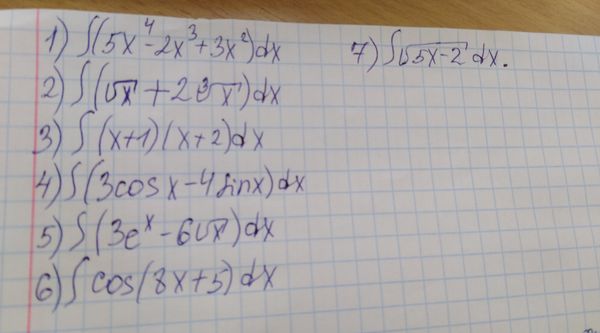 1) ∫(5x⁴-2x³+3x²)dx
2) ∫(√x+2∛x)dx
3) ∫(x+1)(x+2)dx
4) ∫(3cosx-4sinx)dx
5) ∫(3eˣ-6√x)dx
6) ∫cos(8x+5)dx
7) ∫√(5x-2) dx.